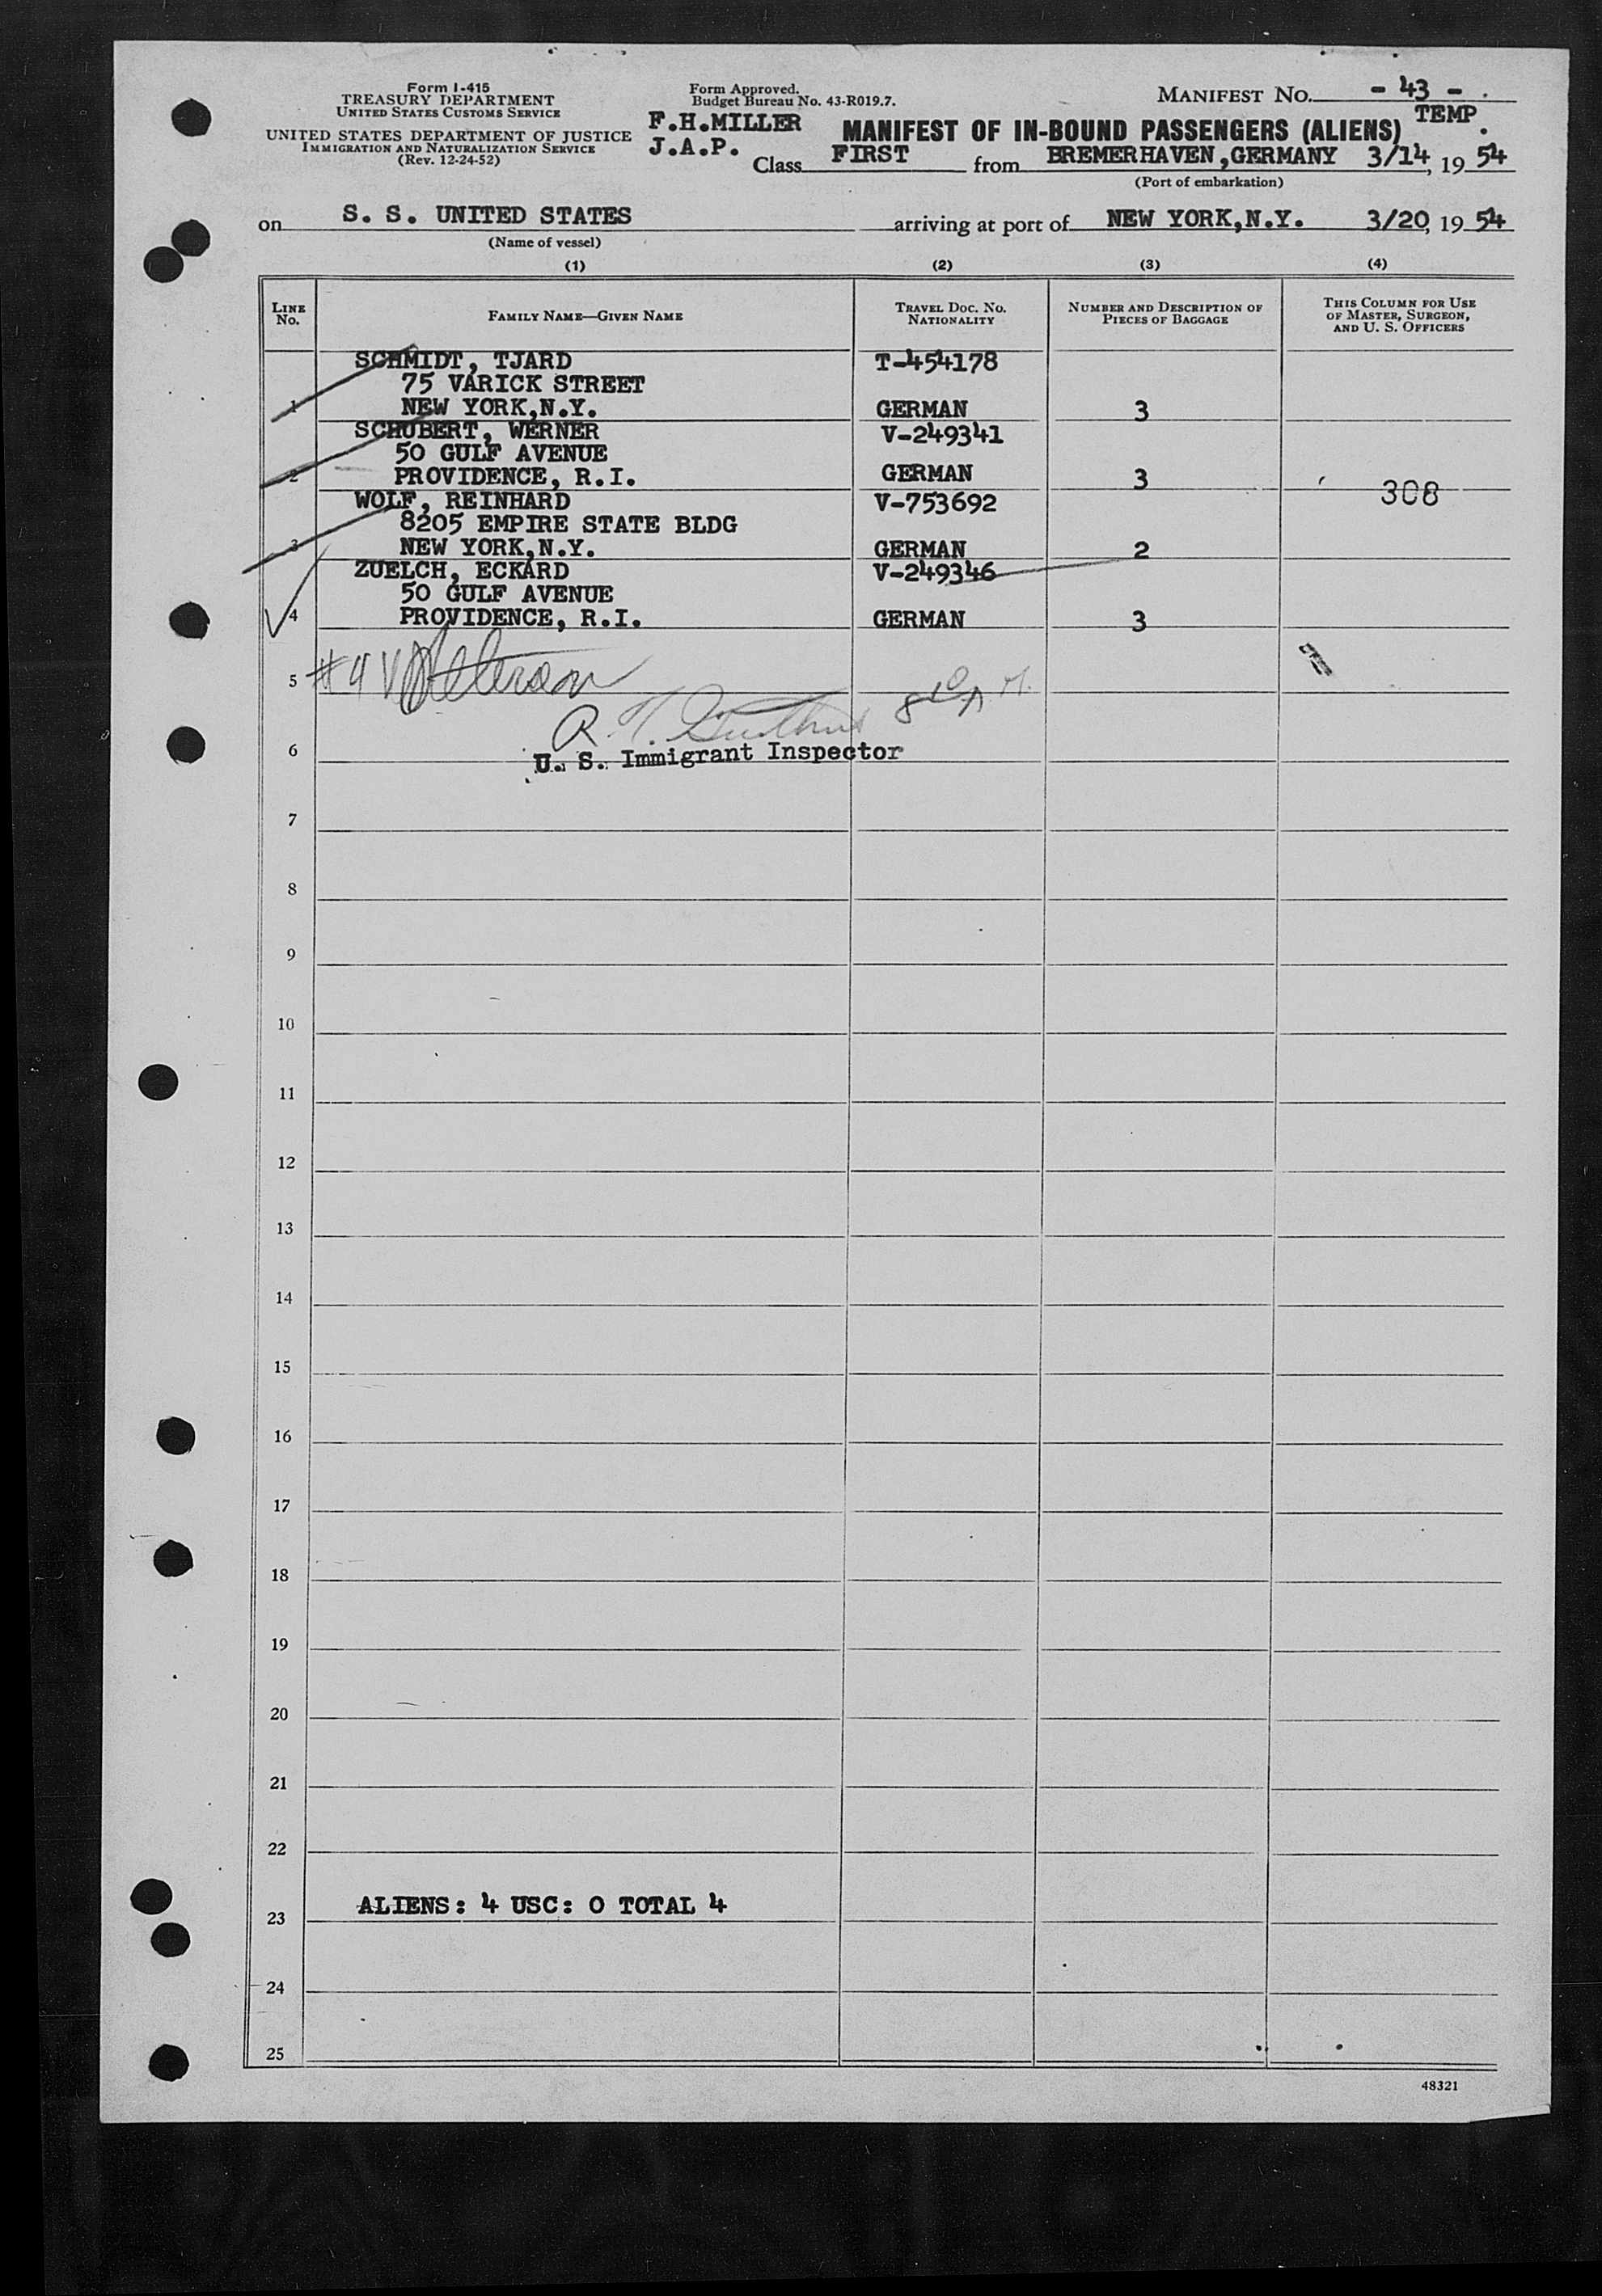 Form I-415
TREASURY DEPARTMENT
UNITED STATES CUSTOMS SERVICE
UNITED STATES DEPARTMENT OF JUSTICE
IMMIGRATION AND NATURALIZATION SERVICE
(Rev. 12-24-52)
Form Approved.
Budget Bureau No. 43-R019.7.
F.H.MILLER
J.A.P.
MANIFEST NO. - 43 -
TEMP.
MANIFEST OF IN-BOUND PASSENGERS (ALIENS)
Class FIRST from BREMERHAVEN,GERMANY 3/14, 19 54
(Port of embarkation)
on S. S. UNITED STATES arriving at port of NEW YORK,N.Y. 3/20, 19 54
(Name of vessel)
(1) (2) (3) (4)
LINE NO. FAMILY NAME—GIVEN NAME TRAVEL DOC. NO. NATIONALITY NUMBER AND DESCRIPTION OF PIECES OF BAGGAGE THIS COLUMN FOR USE OF MASTER, SURGEON, AND U. S. OFFICERS
SCHMIDT, TJARD T-454178
75 VARICK STREET
1 NEW YORK,N.Y. GERMAN 3
SCHUBERT, WERNER V-249341
50 GULF AVENUE
2 PROVIDENCE, R.I. GERMAN 3
308
WOLF, REINHARD V-753692
8205 EMPIRE STATE BLDG
3 NEW YORK,N.Y. GERMAN 2
ZUELCH, ECKARD V-249346
50 GULF AVENUE
4 PROVIDENCE, R.I. GERMAN 3
5 #4
6 U. S. Immigrant Inspector
7
8
9
10
11
12
13
14
15
16
17
18
19
20
21
22
23 ALIENS: 4 USC: 0 TOTAL 4
24
25
48321